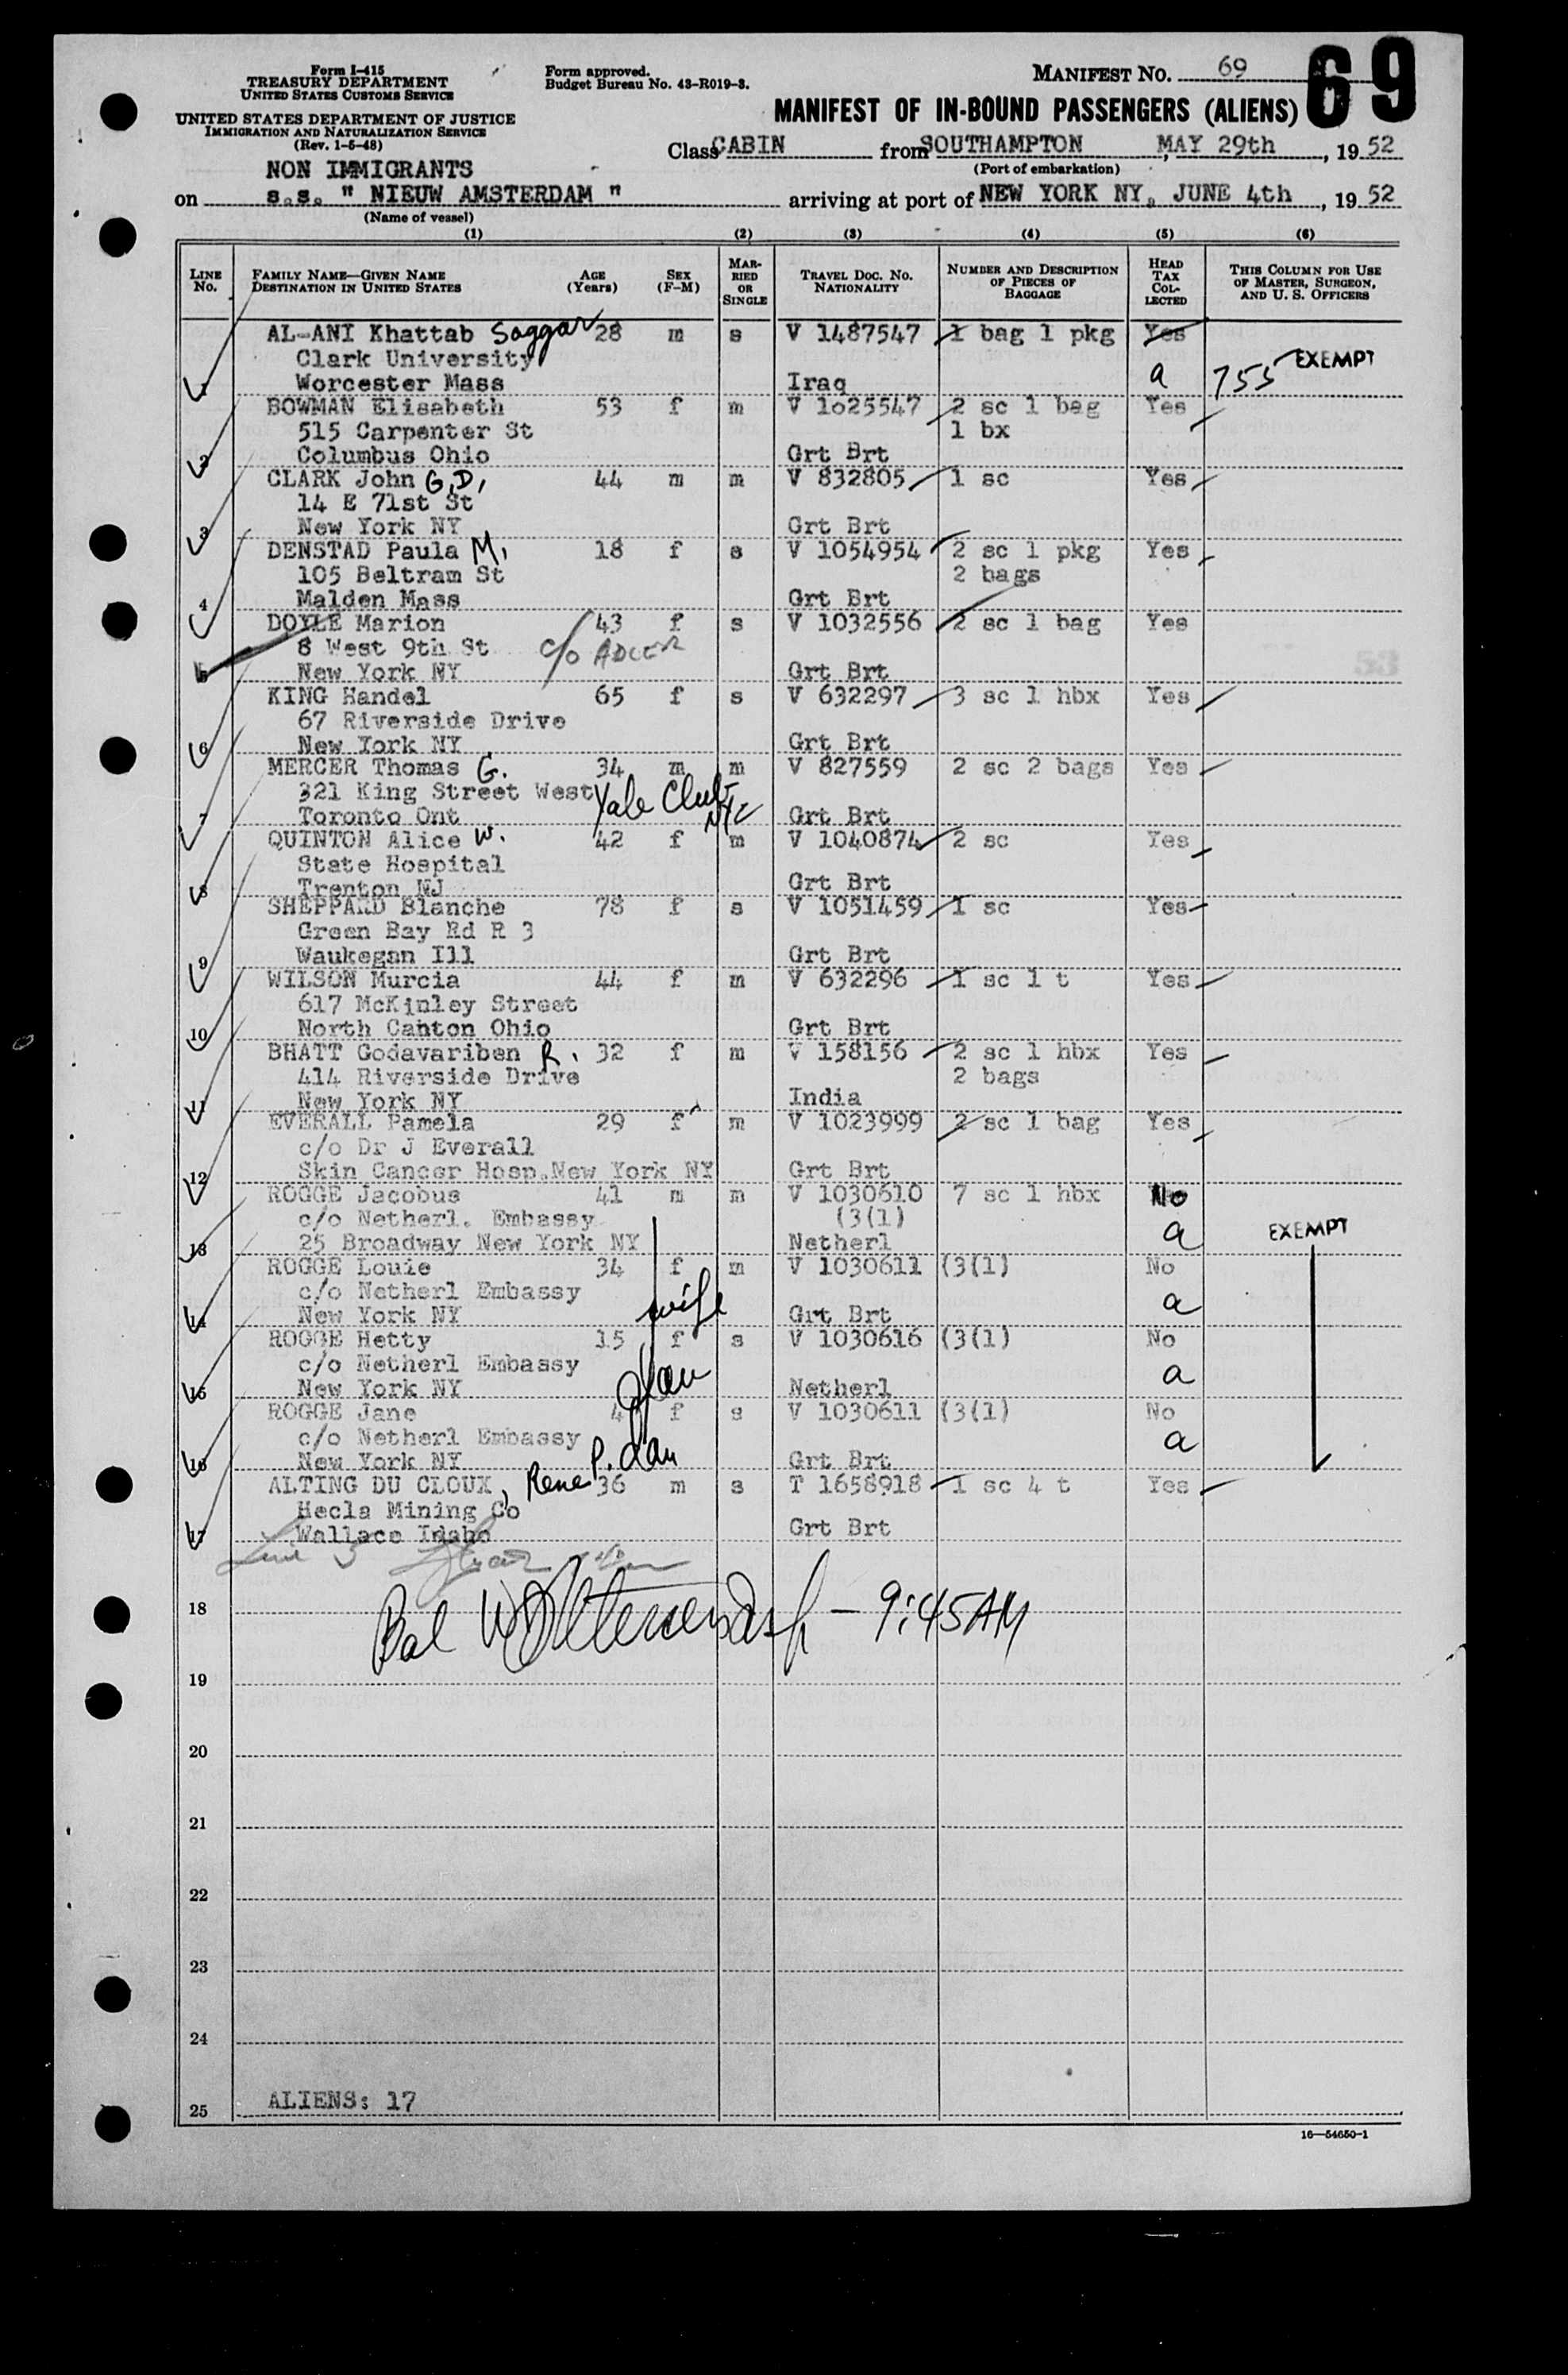 Form I-415
TREASURY DEPARTMENT
UNITED STATES CUSTOMS SERVICE
UNITED STATES DEPARTMENT OF JUSTICE
IMMIGRATION AND NATURALIZATION SERVICE
(Rev. 1-5-48)
Form approved.
Budget Bureau No. 43-R019-3.
MANIFEST NO. 69
69
MANIFEST OF IN-BOUND PASSENGERS (ALIENS)
Class CABIN from SOUTHAMPTON, MAY 29th, 1952
(Port of embarkation)
NON IMMIGRANTS
on s.s. " NIEUW AMSTERDAM " arriving at port of NEW YORK NY. JUNE 4th, 1952
(Name of vessel)
(1) (2) (3) (4) (5) (6)
LINE No. FAMILY NAME—GIVEN NAME DESTINATION IN UNITED STATES AGE (Years) SEX (F-M) MARRIED OR SINGLE TRAVEL DOC. NO. NATIONALITY NUMBER AND DESCRIPTION OF PIECES OF BAGGAGE HEAD TAX COLLECTED THIS COLUMN FOR USE OF MASTER, SURGEON, AND U. S. OFFICERS
AL-ANI Khattab Saggar 28 m s V 1487547 1 bag 1 pkg Yes
Clark University EXEMPT
1 Worcester Mass Iraq a 755
BOWMAN Elisabeth 53 f m V 1o25547 2 sc 1 bag Yes
515 Carpenter St 1 bx
2 Columbus Ohio Grt Brt
CLARK John G.D. 44 m m V 832805 1 sc Yes
14 E 71st St
3 New York NY Grt Brt
DENSTAD Paula M. 18 f s V 1054954 2 sc 1 pkg Yes
105 Beltram St 2 bags
4 Malden Mass Grt Brt
DOYLE Marion 43 f s V 1032556 2 sc 1 bag Yes
8 West 9th St c/o ADLER
5 New York NY Grt Brt
KING Handel 65 f s V 632297 3 sc 1 hbx Yes
67 Riverside Drive
6 New York NY Grt Brt
MERCER Thomas G. 34 m m V 827559 2 sc 2 bags Yes
321 King Street West Yale Club
7 Toronto Ont NYC Grt Brt
QUINTON Alice W. 42 f m V 1040874 2 sc Yes
State Hospital
8 Trenton NJ Grt Brt
SHEPPARD Blanche 78 f s V 1051459 1 sc Yes
Green Bay Rd R 3
9 Waukegan Ill Grt Brt
WILSON Murcia 44 f m V 632296 1 sc 1 t Yes
617 McKinley Street
10 North Canton Ohio Grt Brt
BHATT Godavariben R. 32 f m V 158156 2 sc 1 hbx Yes
414 Riverside Drive 2 bags
11 New York NY India
EVERALL Pamela 29 f m V 1023999 2 sc 1 bag Yes
c/o Dr J Everall
12 Skin Cancer Hosp.New York NY Grt Brt
ROGGE Jacobus 41 m m V 1030610 7 sc 1 hbx No
c/o Netherl. Embassy (3(1) a EXEMPT
13 25 Broadway New York NY Netherl
ROGGE Louie 34 f m V 1030611 (3(1) No
c/o Netherl Embassy wife a
14 New York NY Grt Brt
ROGGE Hetty 15 f s V 1030616 (3(1) No
c/o Netherl Embassy dau a
15 New York NY Netherl
ROGGE Jane 4 f s V 1030611 (3(1) No
c/o Netherl Embassy a
16 New York NY P. dau Grt Brt
ALTING DU CLOUX, Rene 36 m s T 1658918 1 sc 4 t Yes
Hecla Mining Co
17 Wallace Idaho Grt Brt
Line 5
18 Bal - 9:45AM
19
20
21
22
23
24
25 ALIENS: 17
16—54650-1